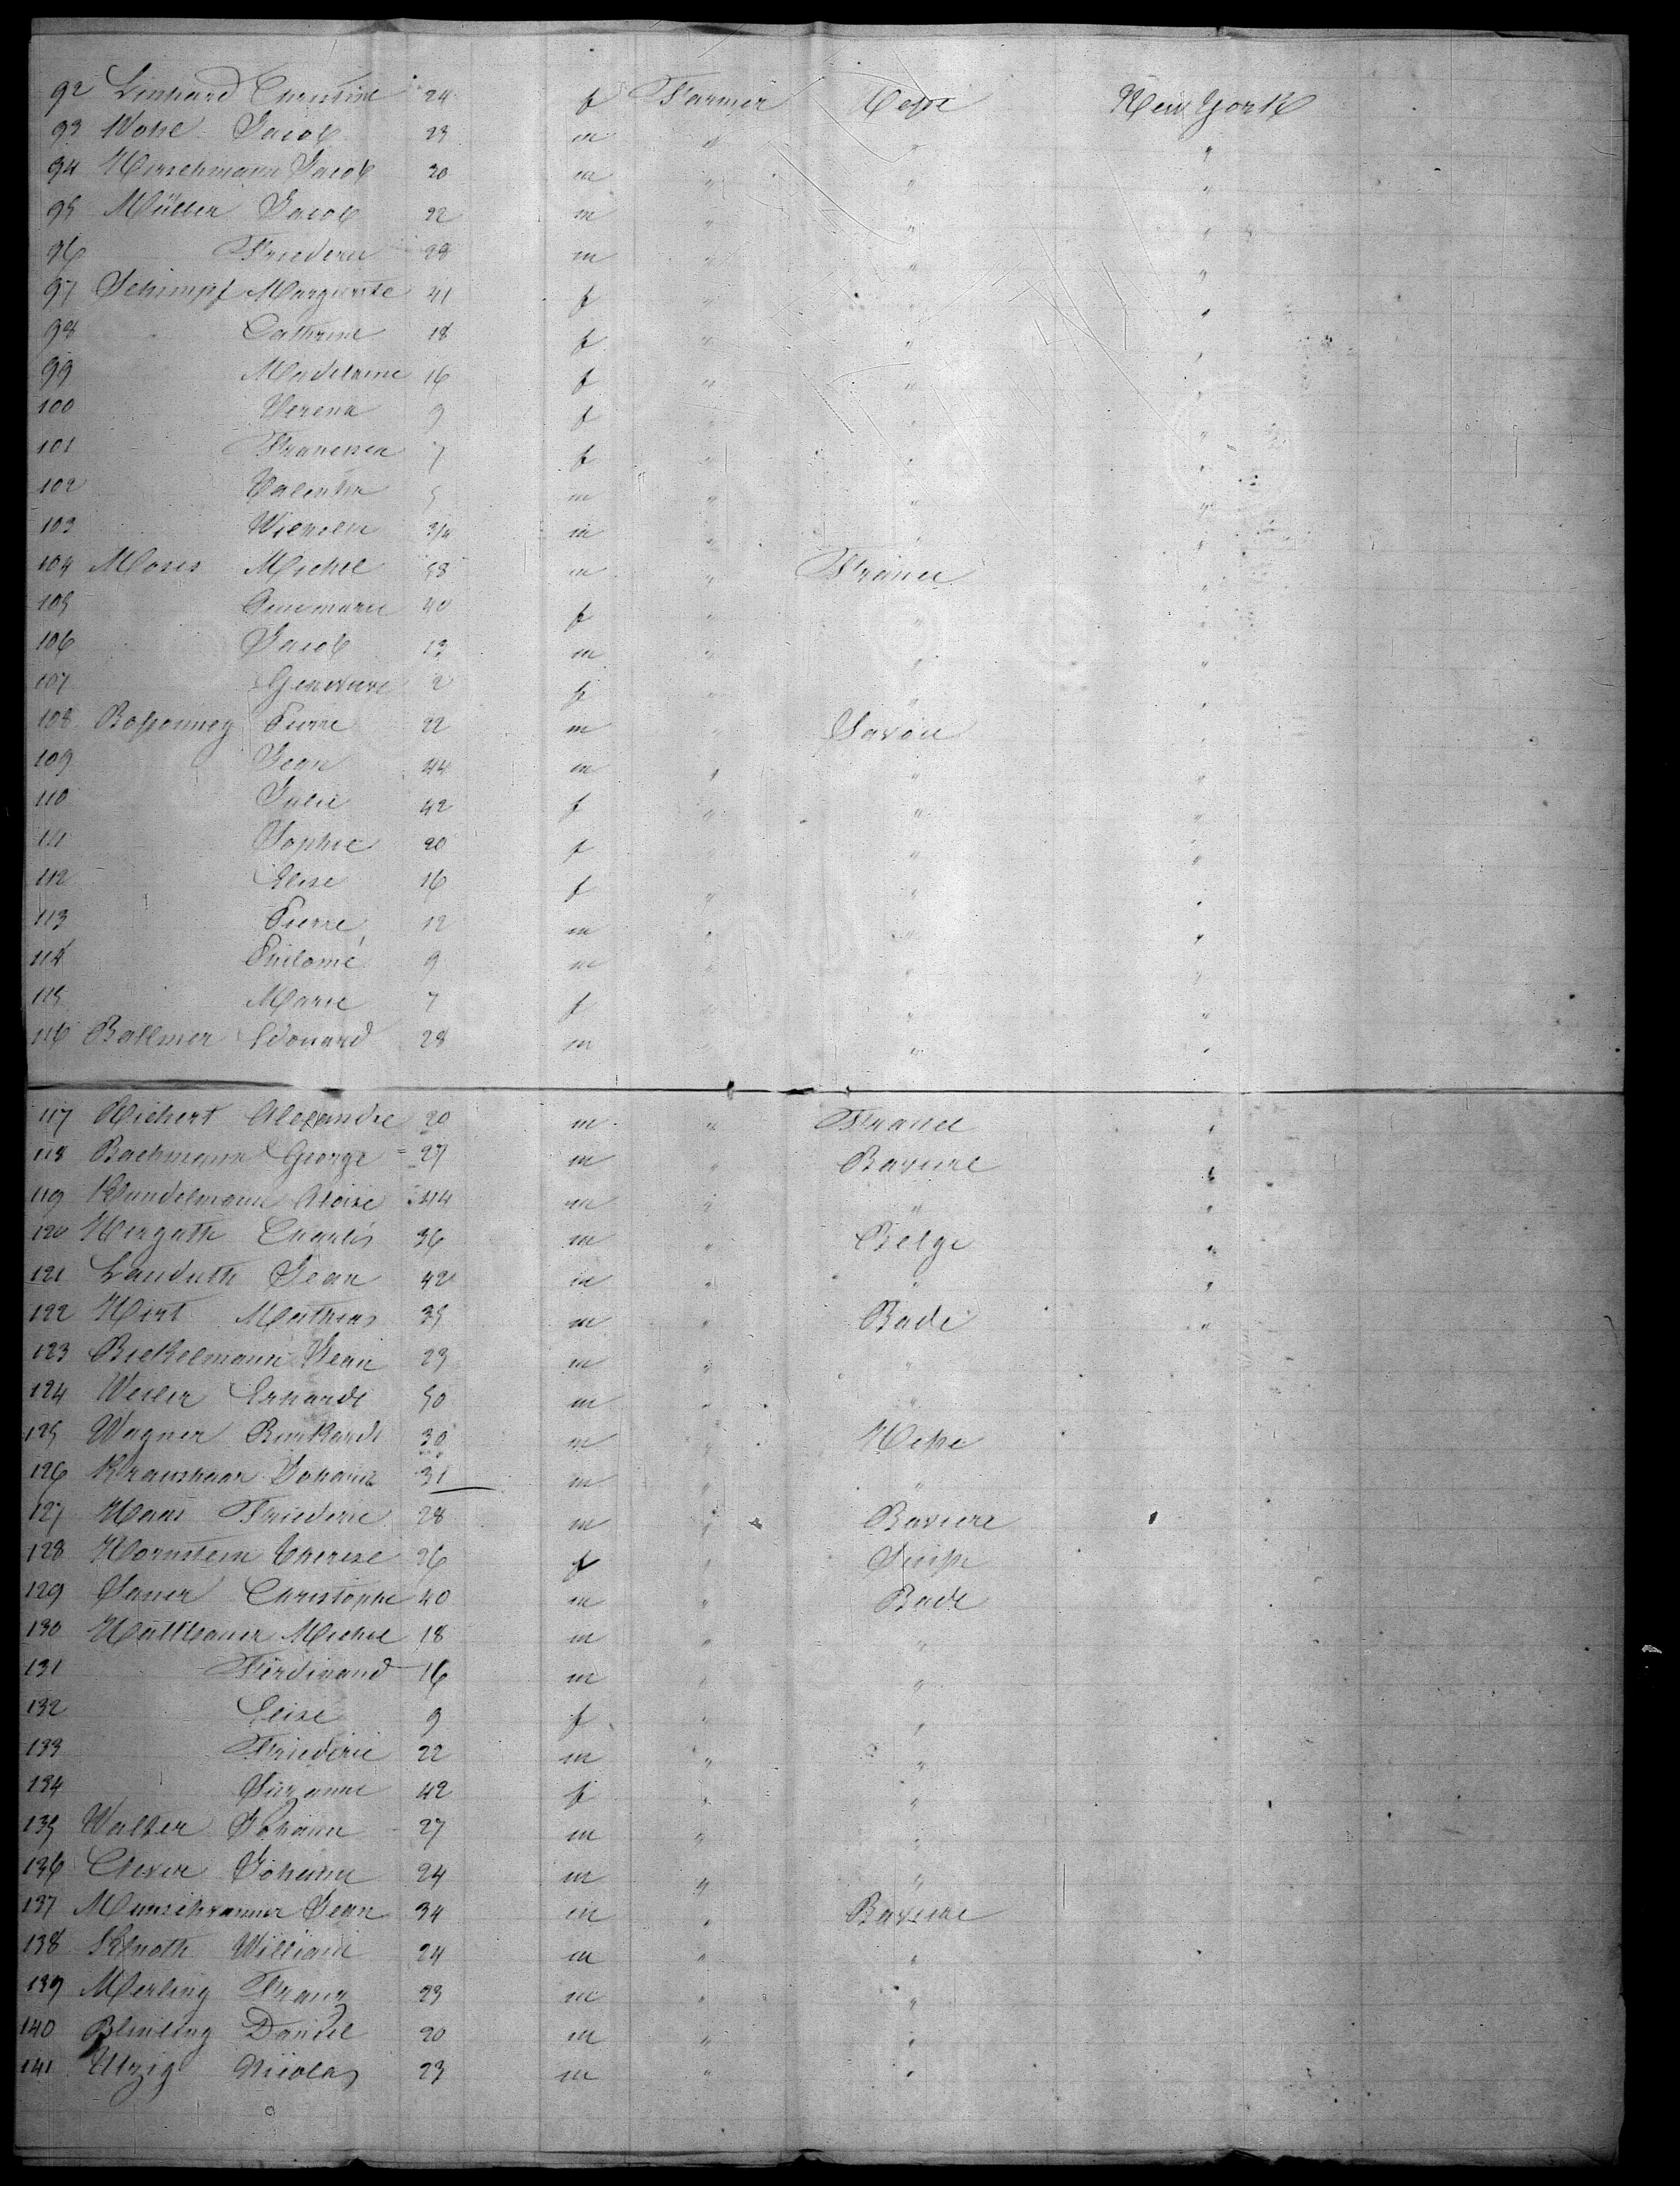 92 Linhard Christine 24 f Farmer Hesse New York
93 Jacob 23 m " " "
94 Hirschmann Jacob 30 m " " "
95 Müller Jacob 22 m " " "
96 Friederic 28 m " " "
97 Schimpf Marguerite 41 f " " "
98 Cathrine 18 f " " "
99 Madelaine 16 f " " "
100 Verena 9 f " " "
101 7 f " " "
102 Valentin 5 m " " "
103 Wilhelm 3/4 m " " "
104 Moses Michel 58 m " France "
105 Annemarie 40 f " " "
106 Jacob 13 m " " "
107 Genevieve 2 f " " "
108 Bossonney Pierre 22 m " Savoie "
109 Jean 44 m " " "
110 Julie 42 f " " "
111 Sophie 20 f " " "
112 Elise 16 f " " "
113 Pierre 12 m " " "
114 Philomé 9 m " " "
115 Marie 7 f " " "
116 Ballmer Edouard 28 m " "
117 Richert Alexandre 20 m " France "
118 Bachmann George 27 m " Baviere "
119 Kundelmann Aloise 44 m " " "
120 Hergath Charles 36 m " Belge "
121 Landuth Jean 42 m " " "
122 Hirt Mathias 35 m " Bade "
123 Bickelmann Jean 23 m " "
124 Weiler Erhardt 50 m " "
125 Wagner Burkardt 30 m " Hesse
126 Kraushaar Johann 31 m " "
127 Haas Friederic 28 m " Baviere
128 Hornstein Therese 26 f " Suisse
129 Sauer Christophe 40 m " Bade
130 Michel 18 m " "
131 Ferdinand 16 m " "
132 Elise 9 f " "
133 Friederic 22 m " "
134 Suzanne 42 f " "
135 Walter Johann 27 m " "
136 Johann 24 m " "
137 Jean 34 m " Baviere
138 Knoth William 24 m " "
139 Merling Franz 23 m " "
140 Daniel 20 m " "
141 Utzig Nicolas 23 m " "